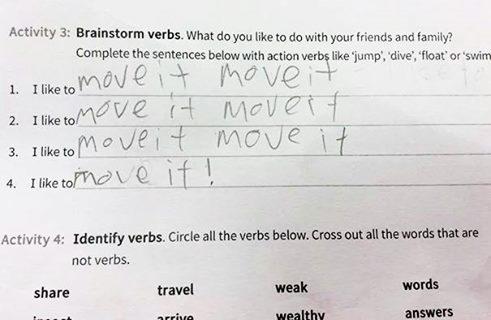 Activity 3: Brainstorm verbs. What do you like to do with your friends and family?
Complete the sentences below with action verbs like 'jump', 'dive', 'float' or 'swim
1. I like to move it move it
2. I like to move it move it
3. I like to move it move it
4. I like to move it!
Activity 4: Identify verbs. Circle all the verbs below. Cross out all the words that are
not verbs.
share travel weak words
arrive wealthy answers